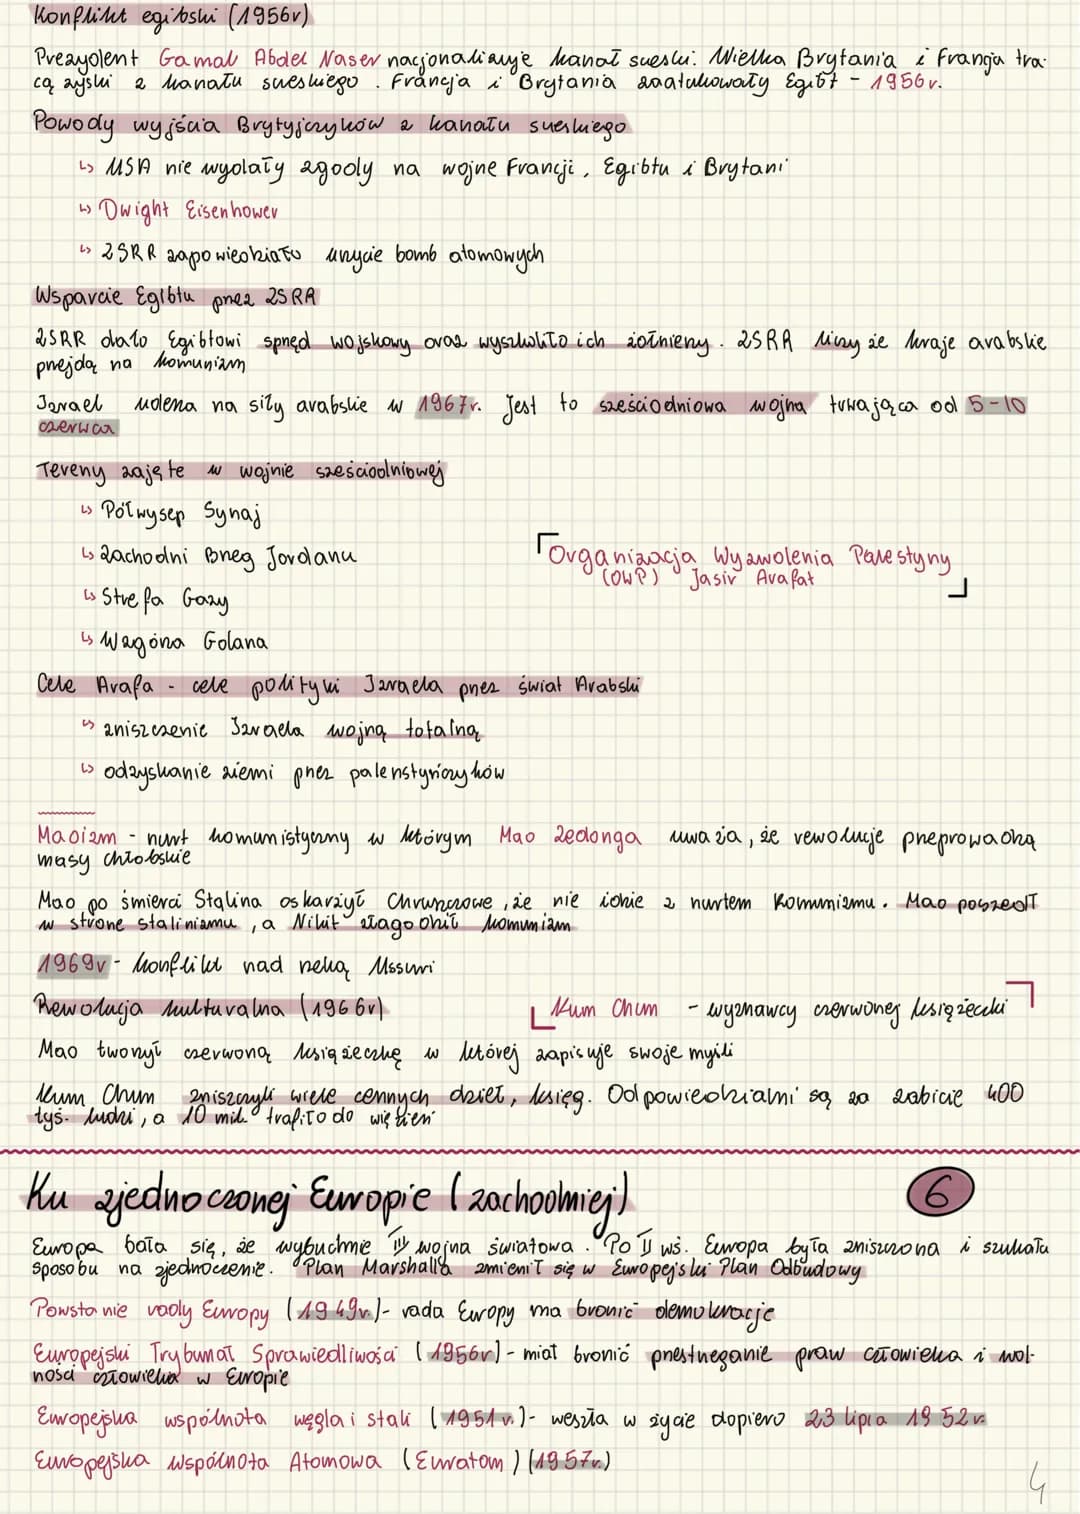 Konflikt egibski (1956r)
Prezydent Gamal Abdel Naser nacjonalizuje kanał sueski. Wielka Brytania i Francja tra-
cą zyski z kanału sueskiego. Francja i Brytania zaatakowały Egibt - 1956r.
Powody wyjścia Brytyjczyków z kanału sueskiego
↳ USA nie wydały zgody na wojne Francji, Egibtu i Brytani
↳ Dwight Eisenhower
↳ ZSRR zapowiedziało urzycie bomb atomowych
Wsparcie Egibtu przez ZSRR
ZSRR dało Egibtowi sprzęd wojskowy oraz wyszkoliło ich żołnierzy. ZSRR liczy że kraje arabskie
przejdą na komunizm
Izrael uderza na siły arabskie w 1967r. Jest to sześciodniowa wojna trwająca od 5-10
czerwca
Tereny zajęte w wojnie sześciodniowej
↳ Półwysep Synaj
↳ Zachodni Brzeg Jordanu
↳ Strefa Gazy
↳ Wzgórza Golana
Organizacja Wyzwolenia Palestyny
(OWP) Jasir Arafat
Cele Arafa - cele polityki Izraela przez świat Arabski
↳ zniszczenie Izraela wojną totalną
↳ odzyskanie ziemi przez palenstyńczyków
Maoizm - nurt komunistyczny w którym Mao Zedonga uważa, że rewolucje przeprowadzą
masy chłobskie
Mao po śmierci Stalina oskarżył Chruszczowe, że nie idzie z nurtem Komunizmu. Mao poszedł
w strone stalinizmu, a Nikit złagodził komunizm
1969r - konflikt nad rzeką Ussuri
Rewolucja kulturalna (1966r)
Kum Chum - wyznawcy czerwonej książeczki
Mao tworzył czerwoną książeczkę w której zapisuje swoje myśli
Kum Chum zniszczyli wiele cennych dzieł, ksiąg. Odpowiedzialni są za zabicie 400
tyś. ludzi, a 10 mil. trafiło do więzień
Ku zjednoczonej Europie (zachodniej)
6
Europa bała się, że wybuchnie III wojna światowa. Po II wś. Europa była zniszczona i szukała
sposobu na zjednoczenie. Plan Marshalla zmienił się w Europejski Plan Odbudowy
Powstanie rady Europy (1949r.) - rada Europy ma bronić demokracje
Europejski Trybunał Sprawiedliwości (1956r) - miał bronić przestrzeganie praw człowieka i wol-
ności człowieka w Europie
Europejska wspólnota węgla i stali (1951r.) - weszła w życie dopiero 23 lipca 1952r.
Europejska wspólnota Atomowa (Euratom) (1957r.)
4